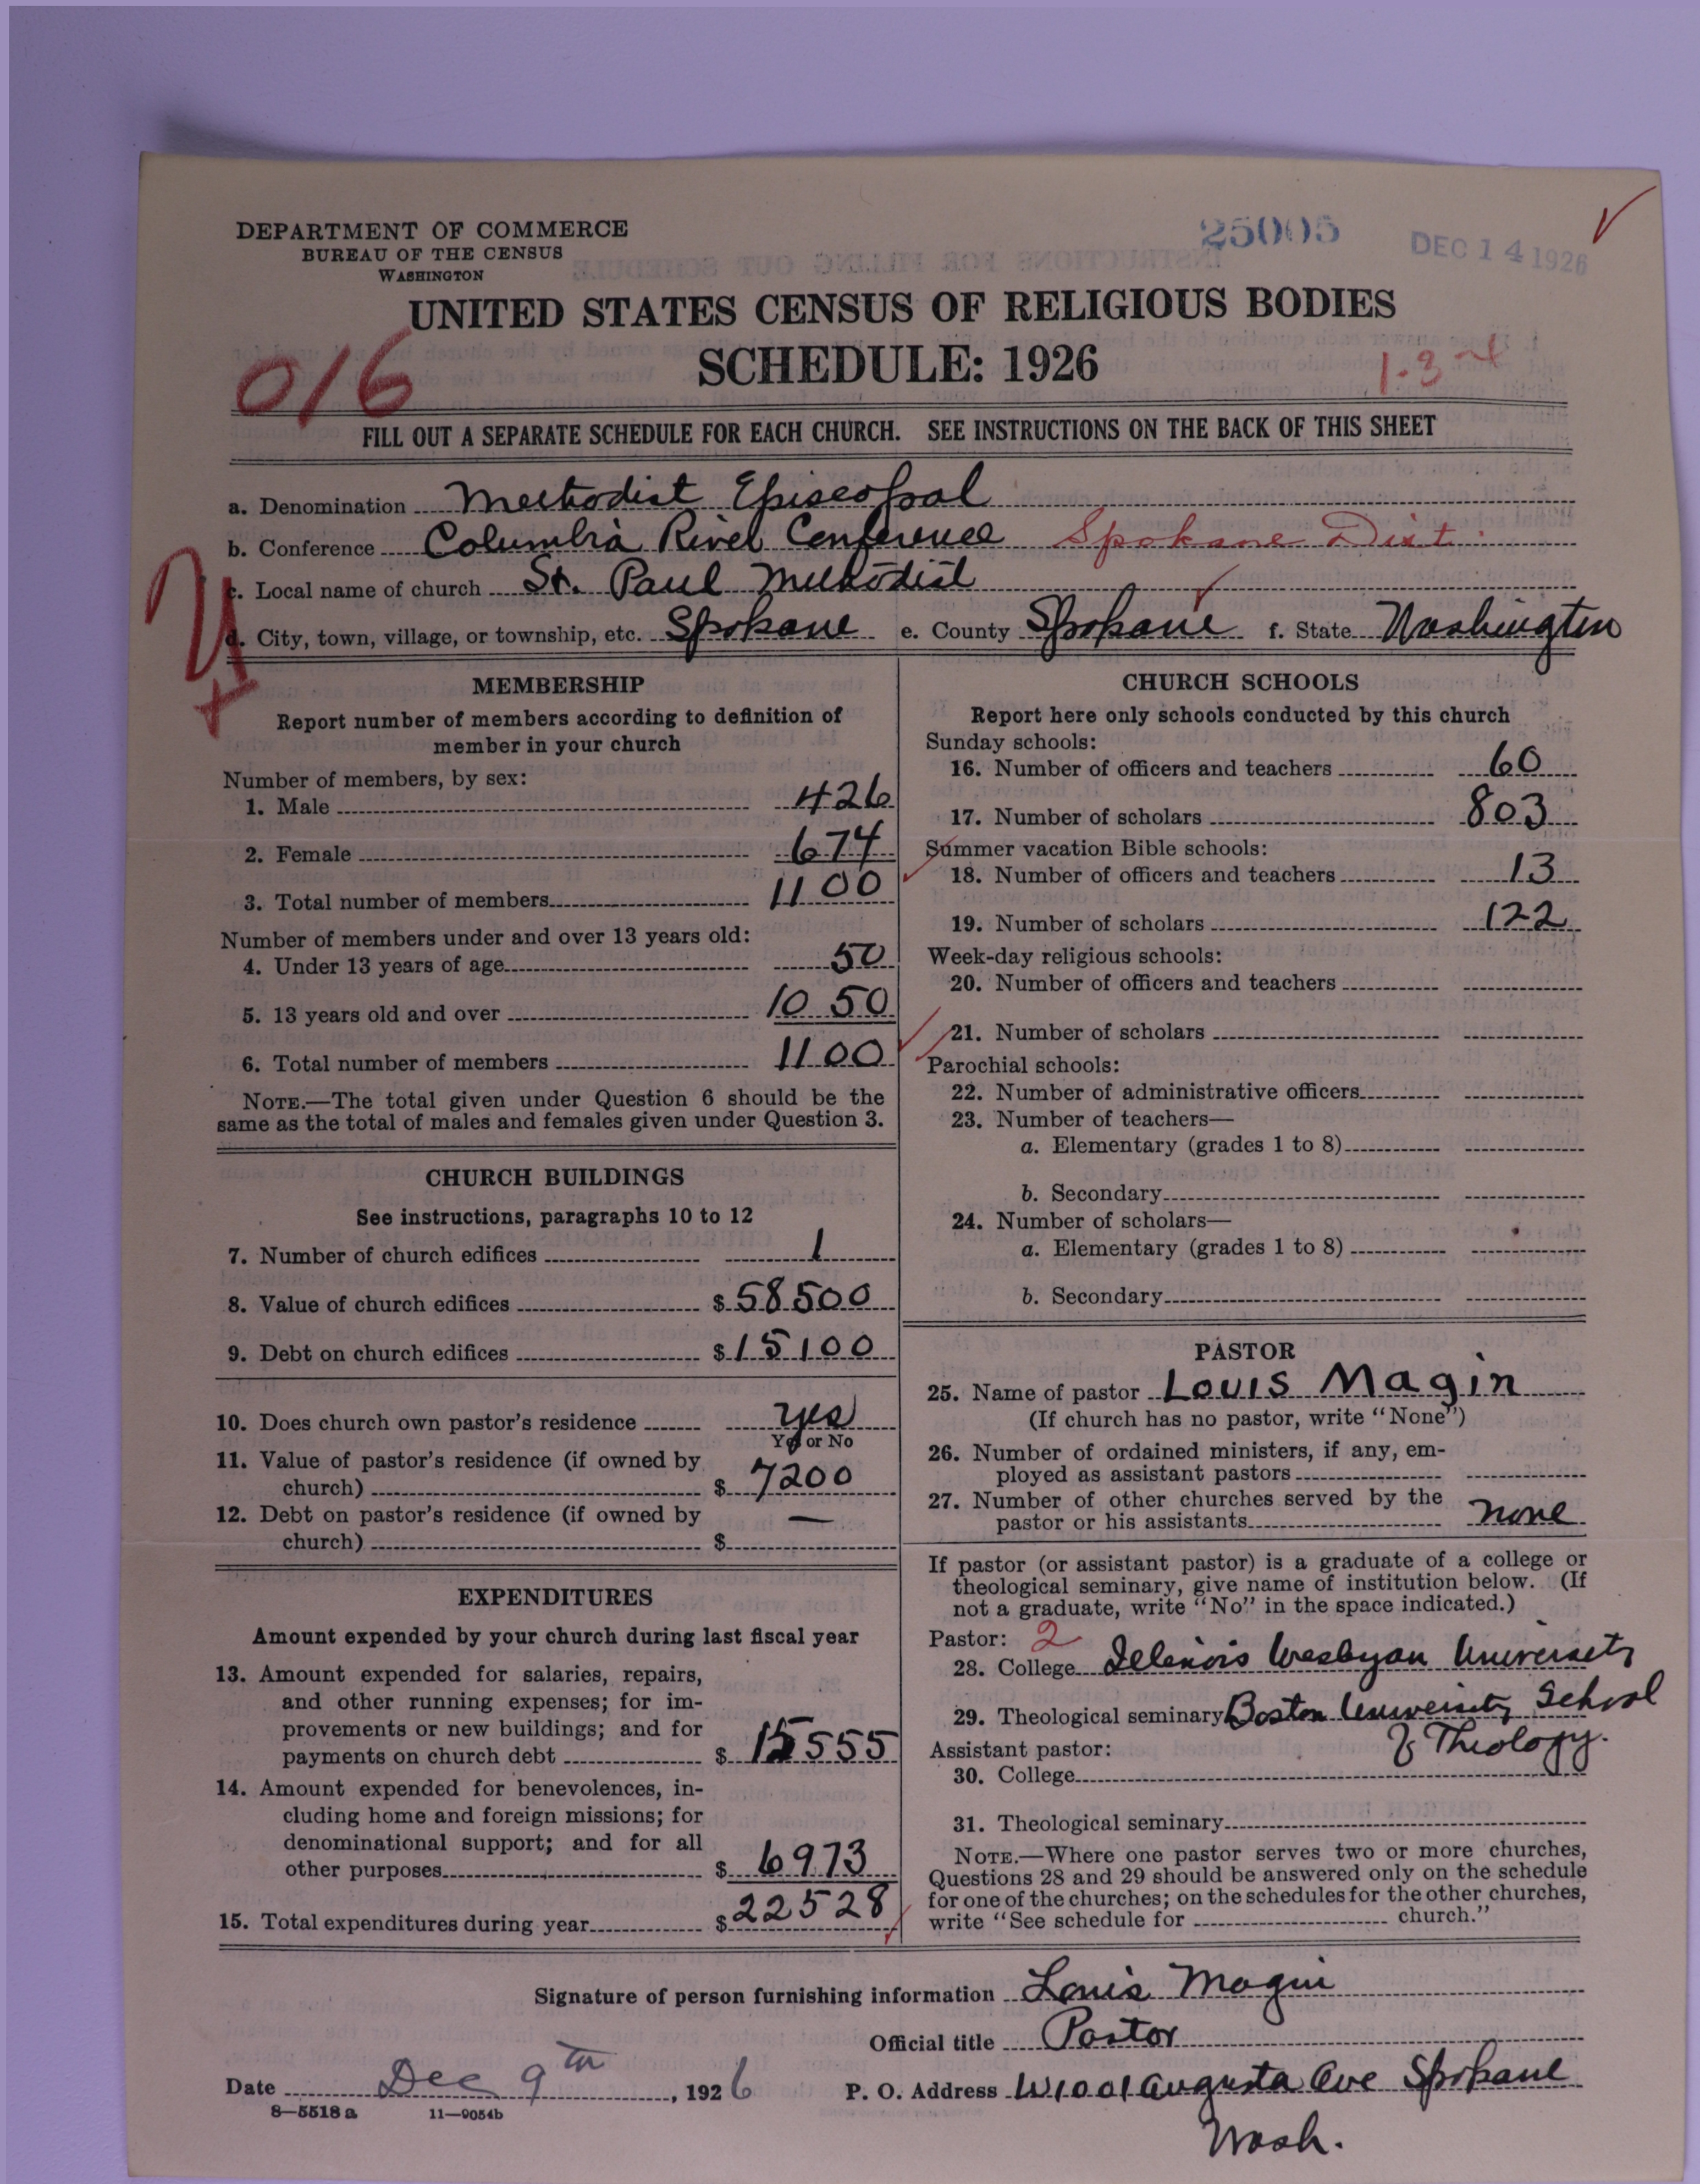 DEPARTMENT OF COMMERCE
BUREAU OF THE CENSUS
WASHINGTON
25005
DEC 14 1926
UNITED STATES CENSUS OF RELIGIOUS BODIES
SCHEDULE: 1926
016
FILL OUT A SEPARATE SCHEDULE FOR EACH CHURCH. SEE INSTRUCTIONS ON THE BACK OF THIS SHEET
a. Denomination Methodist Episcopal
b. Conference Columbia River Conference Spokane Dist.
c. Local name of church St. Paul Methodist
d. City, town, village, or township, etc. Spokane e. County Spokane f. State Washington
MEMBERSHIP
Report number of members according to definition of
member in your church
Number of members, by sex:
1. Male 426
2. Female 674
3. Total number of members 1100
Number of members under and over 13 years old:
4. Under 13 years of age 50
5. 13 years old and over 1050
6. Total number of members 1100
NOTE.—The total given under Question 6 should be the
same as the total of males and females given under Question 3.
CHURCH BUILDINGS
See instructions, paragraphs 10 to 12
7. Number of church edifices 1
8. Value of church edifices $58500
9. Debt on church edifices $15100
10. Does church own pastor's residence yes
Yes or No
11. Value of pastor's residence (if owned by
church) $7200
12. Debt on pastor's residence (if owned by
church) $ —
EXPENDITURES
Amount expended by your church during last fiscal year
13. Amount expended for salaries, repairs,
and other running expenses; for im-
provements or new buildings; and for
payments on church debt $15555
14. Amount expended for benevolences, in-
cluding home and foreign missions; for
denominational support; and for all
other purposes $6973
15. Total expenditures during year $22528
CHURCH SCHOOLS
Report here only schools conducted by this church
Sunday schools:
16. Number of officers and teachers 60
17. Number of scholars 803
Summer vacation Bible schools:
18. Number of officers and teachers 13
19. Number of scholars 122
Week-day religious schools:
20. Number of officers and teachers
21. Number of scholars
Parochial schools:
22. Number of administrative officers
23. Number of teachers—
a. Elementary (grades 1 to 8)
b. Secondary
24. Number of scholars—
a. Elementary (grades 1 to 8)
b. Secondary
PASTOR
25. Name of pastor Louis Magin
(If church has no pastor, write "None")
26. Number of ordained ministers, if any, em-
ployed as assistant pastors
27. Number of other churches served by the
pastor or his assistants none
If pastor (or assistant pastor) is a graduate of a college or
theological seminary, give name of institution below. (If
not a graduate, write "No" in the space indicated.)
Pastor: 2
28. College Illinois Wesleyan University
29. Theological seminary Boston University School
of Theology.
Assistant pastor:
30. College
31. Theological seminary
NOTE.—Where one pastor serves two or more churches,
Questions 28 and 29 should be answered only on the schedule
for one of the churches; on the schedules for the other churches,
write "See schedule for church."
Signature of person furnishing information Louis Magin
Official title Pastor
Date Dec 9th, 1926 P. O. Address W1001 Augusta Ave Spokane
Wash.
8—5518 a 11—9054b